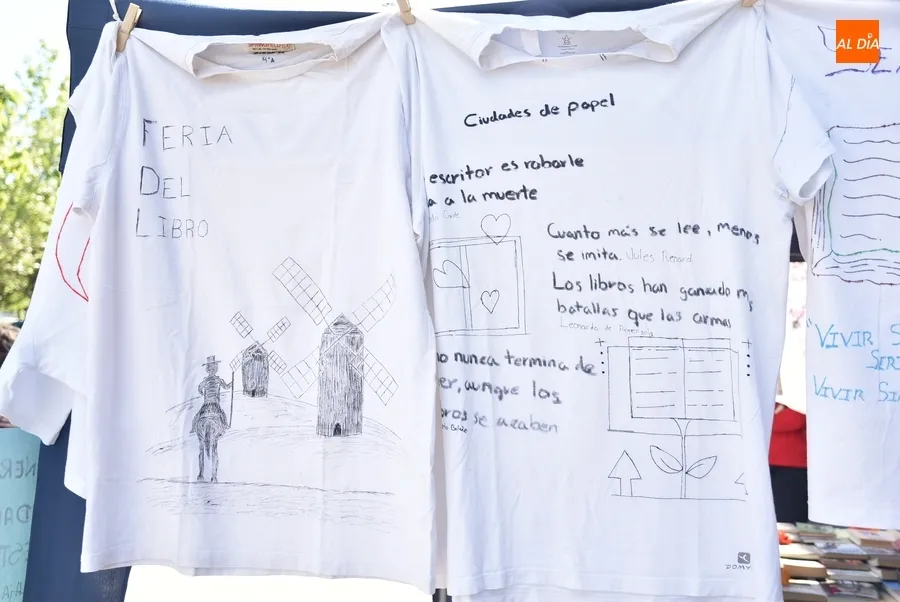 AL DÍA
4ºA
FERIA
DEL
LIBRO
Ciudades de papel
escritor es robarle
a a la muerte
Cuanto más se lee, menos
se imita. Jules Renard
Los libros han ganado m
batallas que las armas
Leonardo de
o nunca termina de
er, aunque los
bros se acaben
DOMY
"VIVIR S
SER
VIVIR SI